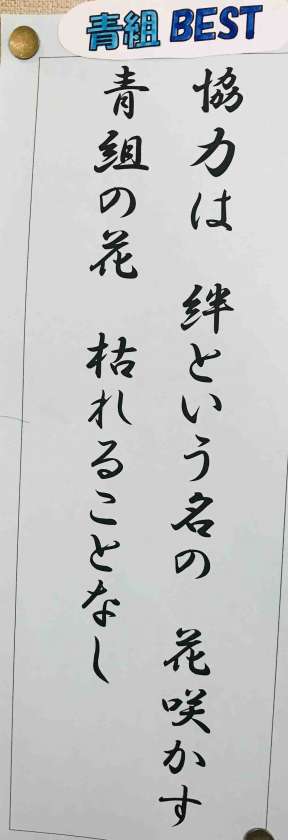 青組 BEST
協力は　絆という名の　花咲かす
青組の花　枯れることなし